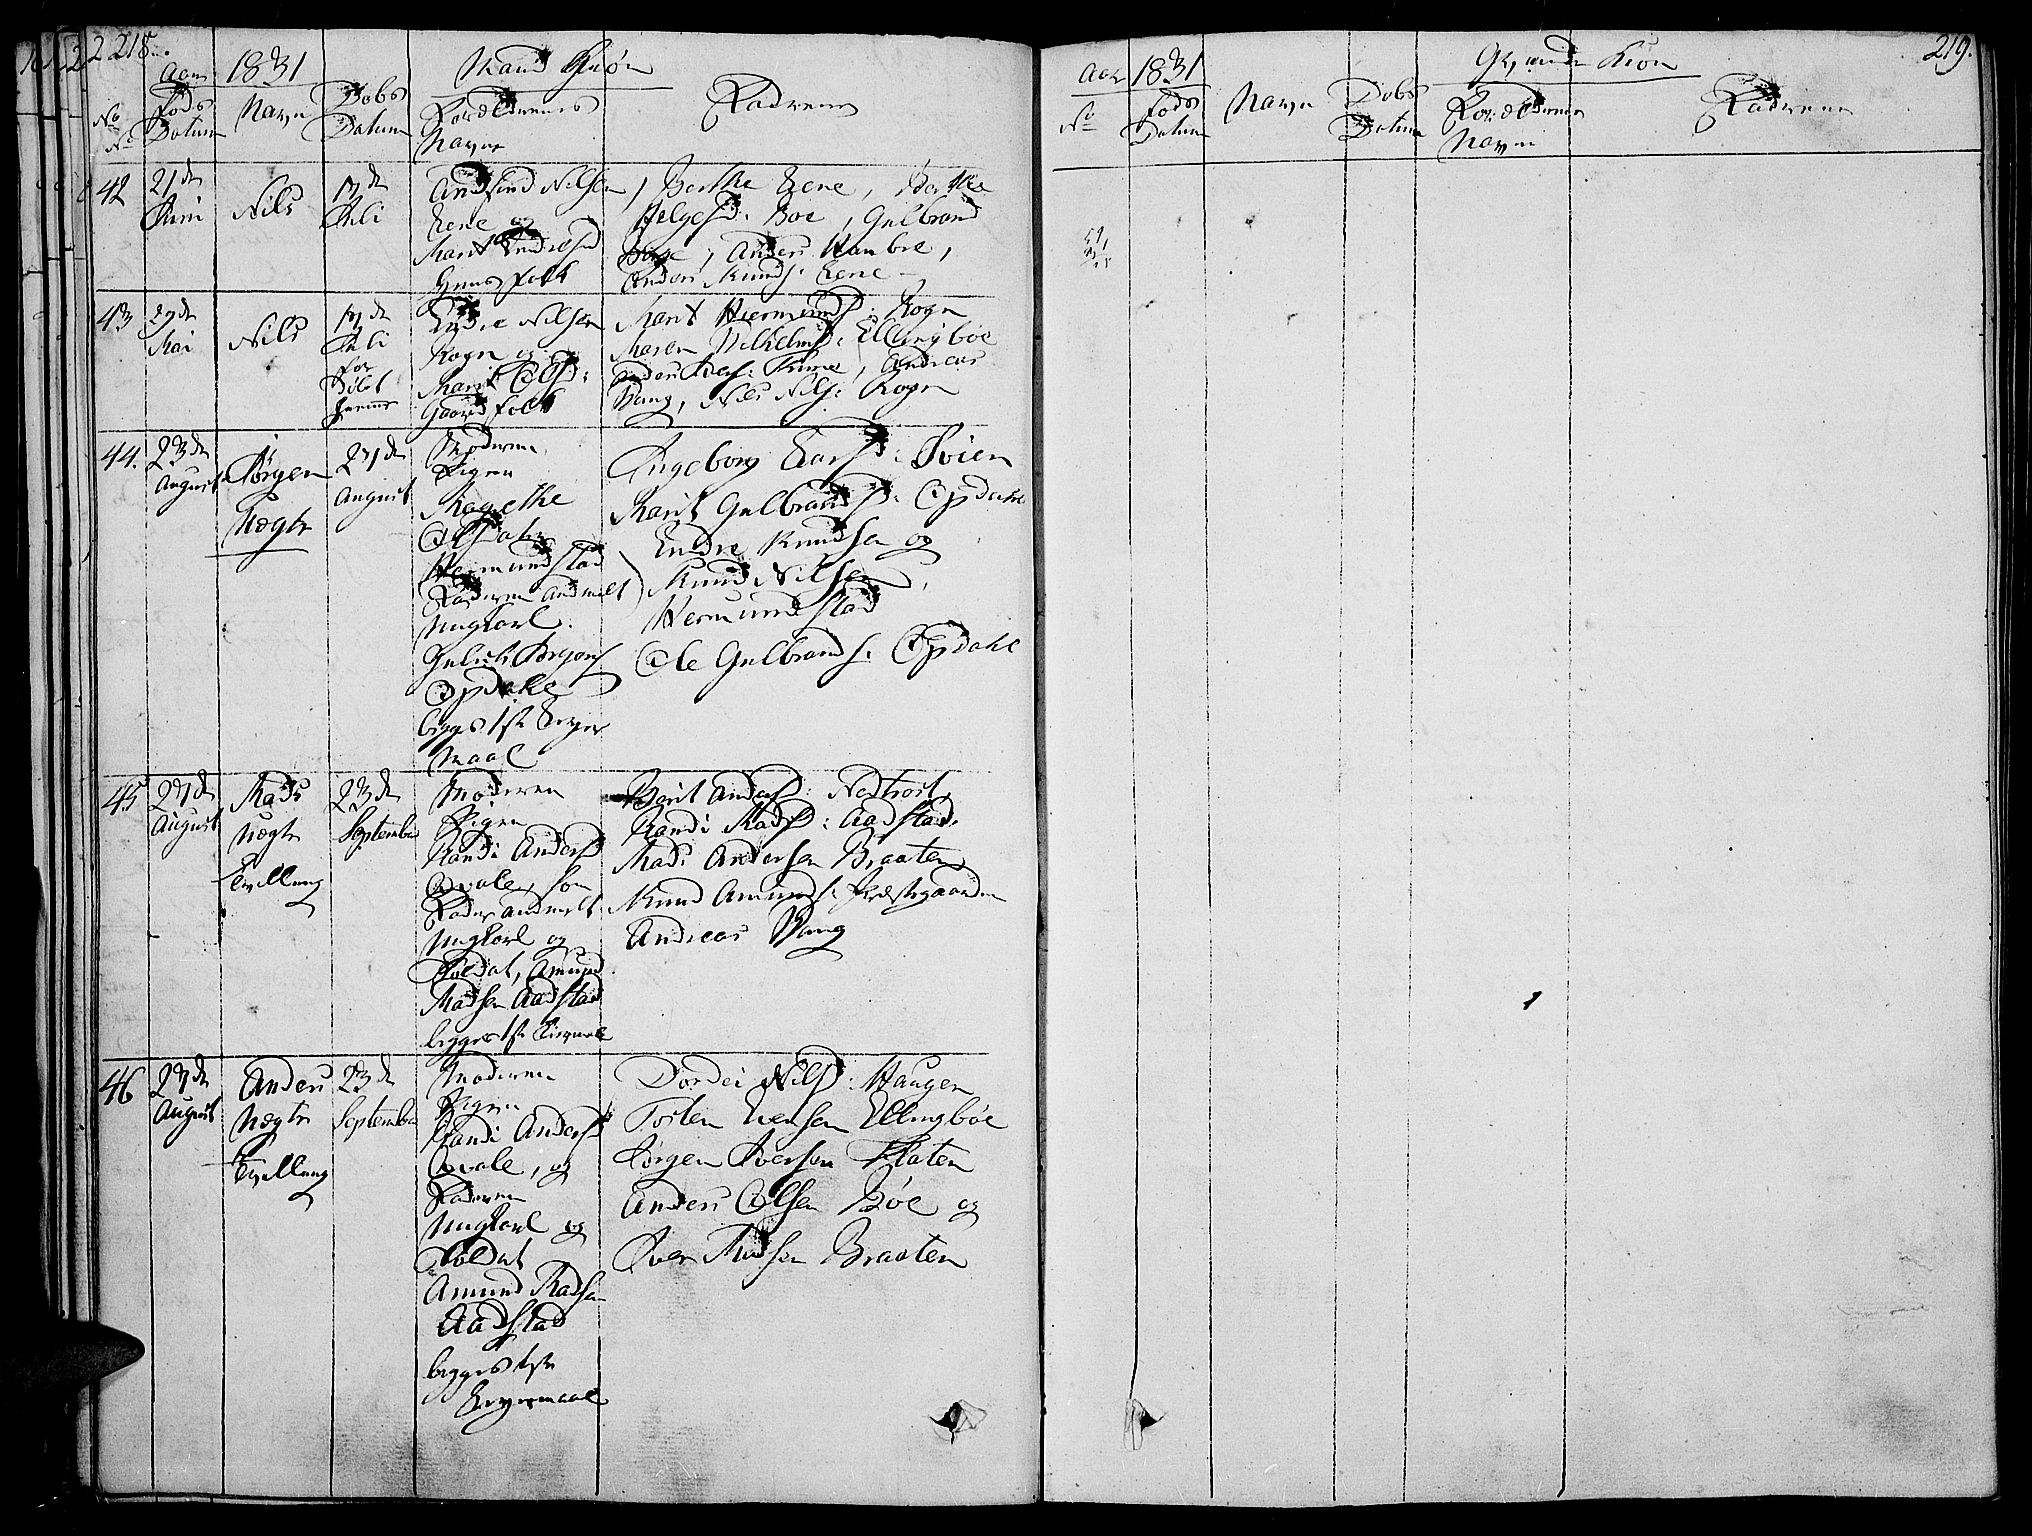 218.
Aar 1831 Mand Kiøn
No Føds Datum Navn Dobs Datum Foreldrenes Navne Fadrene
42 21de Juni Nils Juli
Andfind Nilsen
Eene og
Marit Endresd
Huusfolk
Berthe Eene, Berthe
Helgesd: Boe, Gulbrand
Boge, Anders Hambre,
Anders Knuds: Eene
43 29de Mai Nils Juli for
Endre Nilsen
Rogn og
Marit Olsd:
Gaardfolk
Marit Hermunds: Rogn
Maren Vilhelmsd: Ellingbøe
Andreas
Bang, Nils Nils: Rogn
44. 23de August Jørgen Uægte 27de August
Moderen
Pigen
Magrethe
Olsdatter
Hermundstad
Faderen andmelt
Ungkarl
Gulich Jørgens
Opdahl
begges 1ste Leyer
maal
Ingeborg Larsd: Søien
Marit Gulbrandsd: Opdahl
Endre Knudsen og
Knud Nilsen,
Hermundstad
Ole Gulbrands: Opdahl
45 27de August Mads Uægte Tvilling 23de September
Moderen
Pigen
Randi Andersd
Qvale, som
Fader andmelt
Ungkarl og
Soldat, Amund
Madsen Aadstad
begges 1ste Leiermaal
Berit Andersd: Nedtrost,
Randi Madsd: Aadstad,
Mads Andersen Braaten
Knud Amunds: Præstegaarden
Andreas Bang
46 27de August Anders Uægte Tvilling 23de September
Moderen
Pigen
Randi Andersd
Qvale, og
Faderen
Ungkarl og
Soldat
Amund Madsen
Aadstad
begges 1ste
Leyermaal
Dordei Nilsd: Haugen
Torsten Evensen Ellingbøe
Jørgen Iversen Flaten
Anders Olsen Bøe og
Iver Madsen Braaten
219.
Aar 1831 Qvinde Kiøn
No Føds Datum Navn Dobs Datum Foreldrenes Navn Fadrene